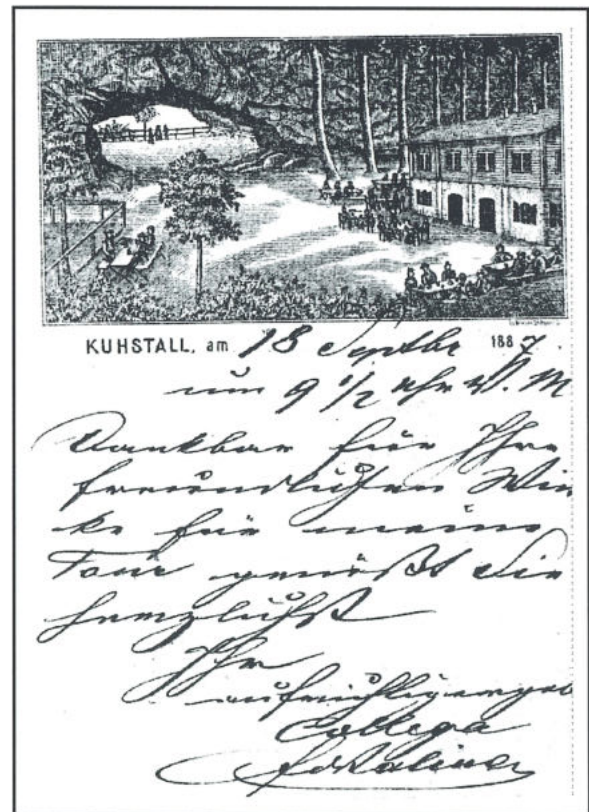 KUHSTALL, am 18 Septbr 1887.
um 9 1/2 Uhr V. M
Dankbar für Ihre
freundlichen Win
ke für meine
Tour grüßt Sie
herzlichst
Ihr
aufrichtig ergeb
College